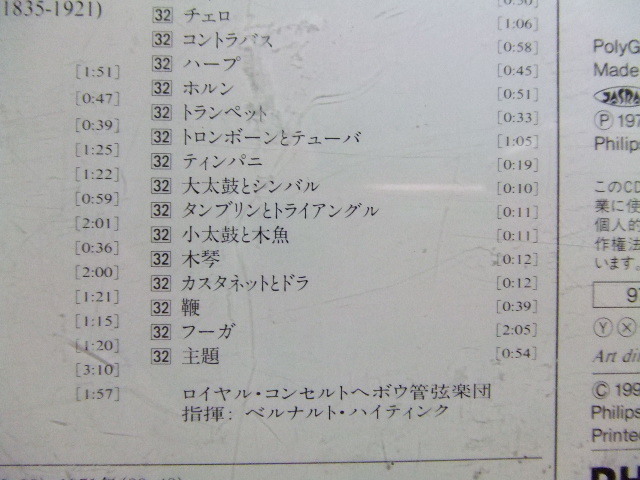 1835-1921)
[1:51]
[0:47]
[0:39]
[1:25]
[1:22]
[0:59]
[2:01]
[0:36]
[2:00]
[1:21]
[1:15]
[1:20]
[3:10]
[1:57]
32 チェロ [1:06]
32 コントラバス [0:58]
32 ハープ [0:45]
32 ホルン [0:51]
32 トランペット [0:33]
32 トロンボーンとテューバ [1:05]
32 ティンパニ [0:19]
32 大太鼓とシンバル [0:10]
32 タンブリンとトライアングル [0:11]
32 小太鼓と木魚 [0:11]
32 木琴 [0:12]
32 カスタネットとドラ [0:12]
32 鞭 [0:39]
32 フーガ [2:05]
32 主題 [0:54]
ロイヤル・コンセルトヘボウ管弦楽団
指揮: ベルナルト・ハイティンク
PolyG
Made
JASRA
Ⓟ 197
Philips
このCD
業に使
個人的
作権法
います。
97
Ⓨ Ⓧ
Art di
© 199
Philips
Printe